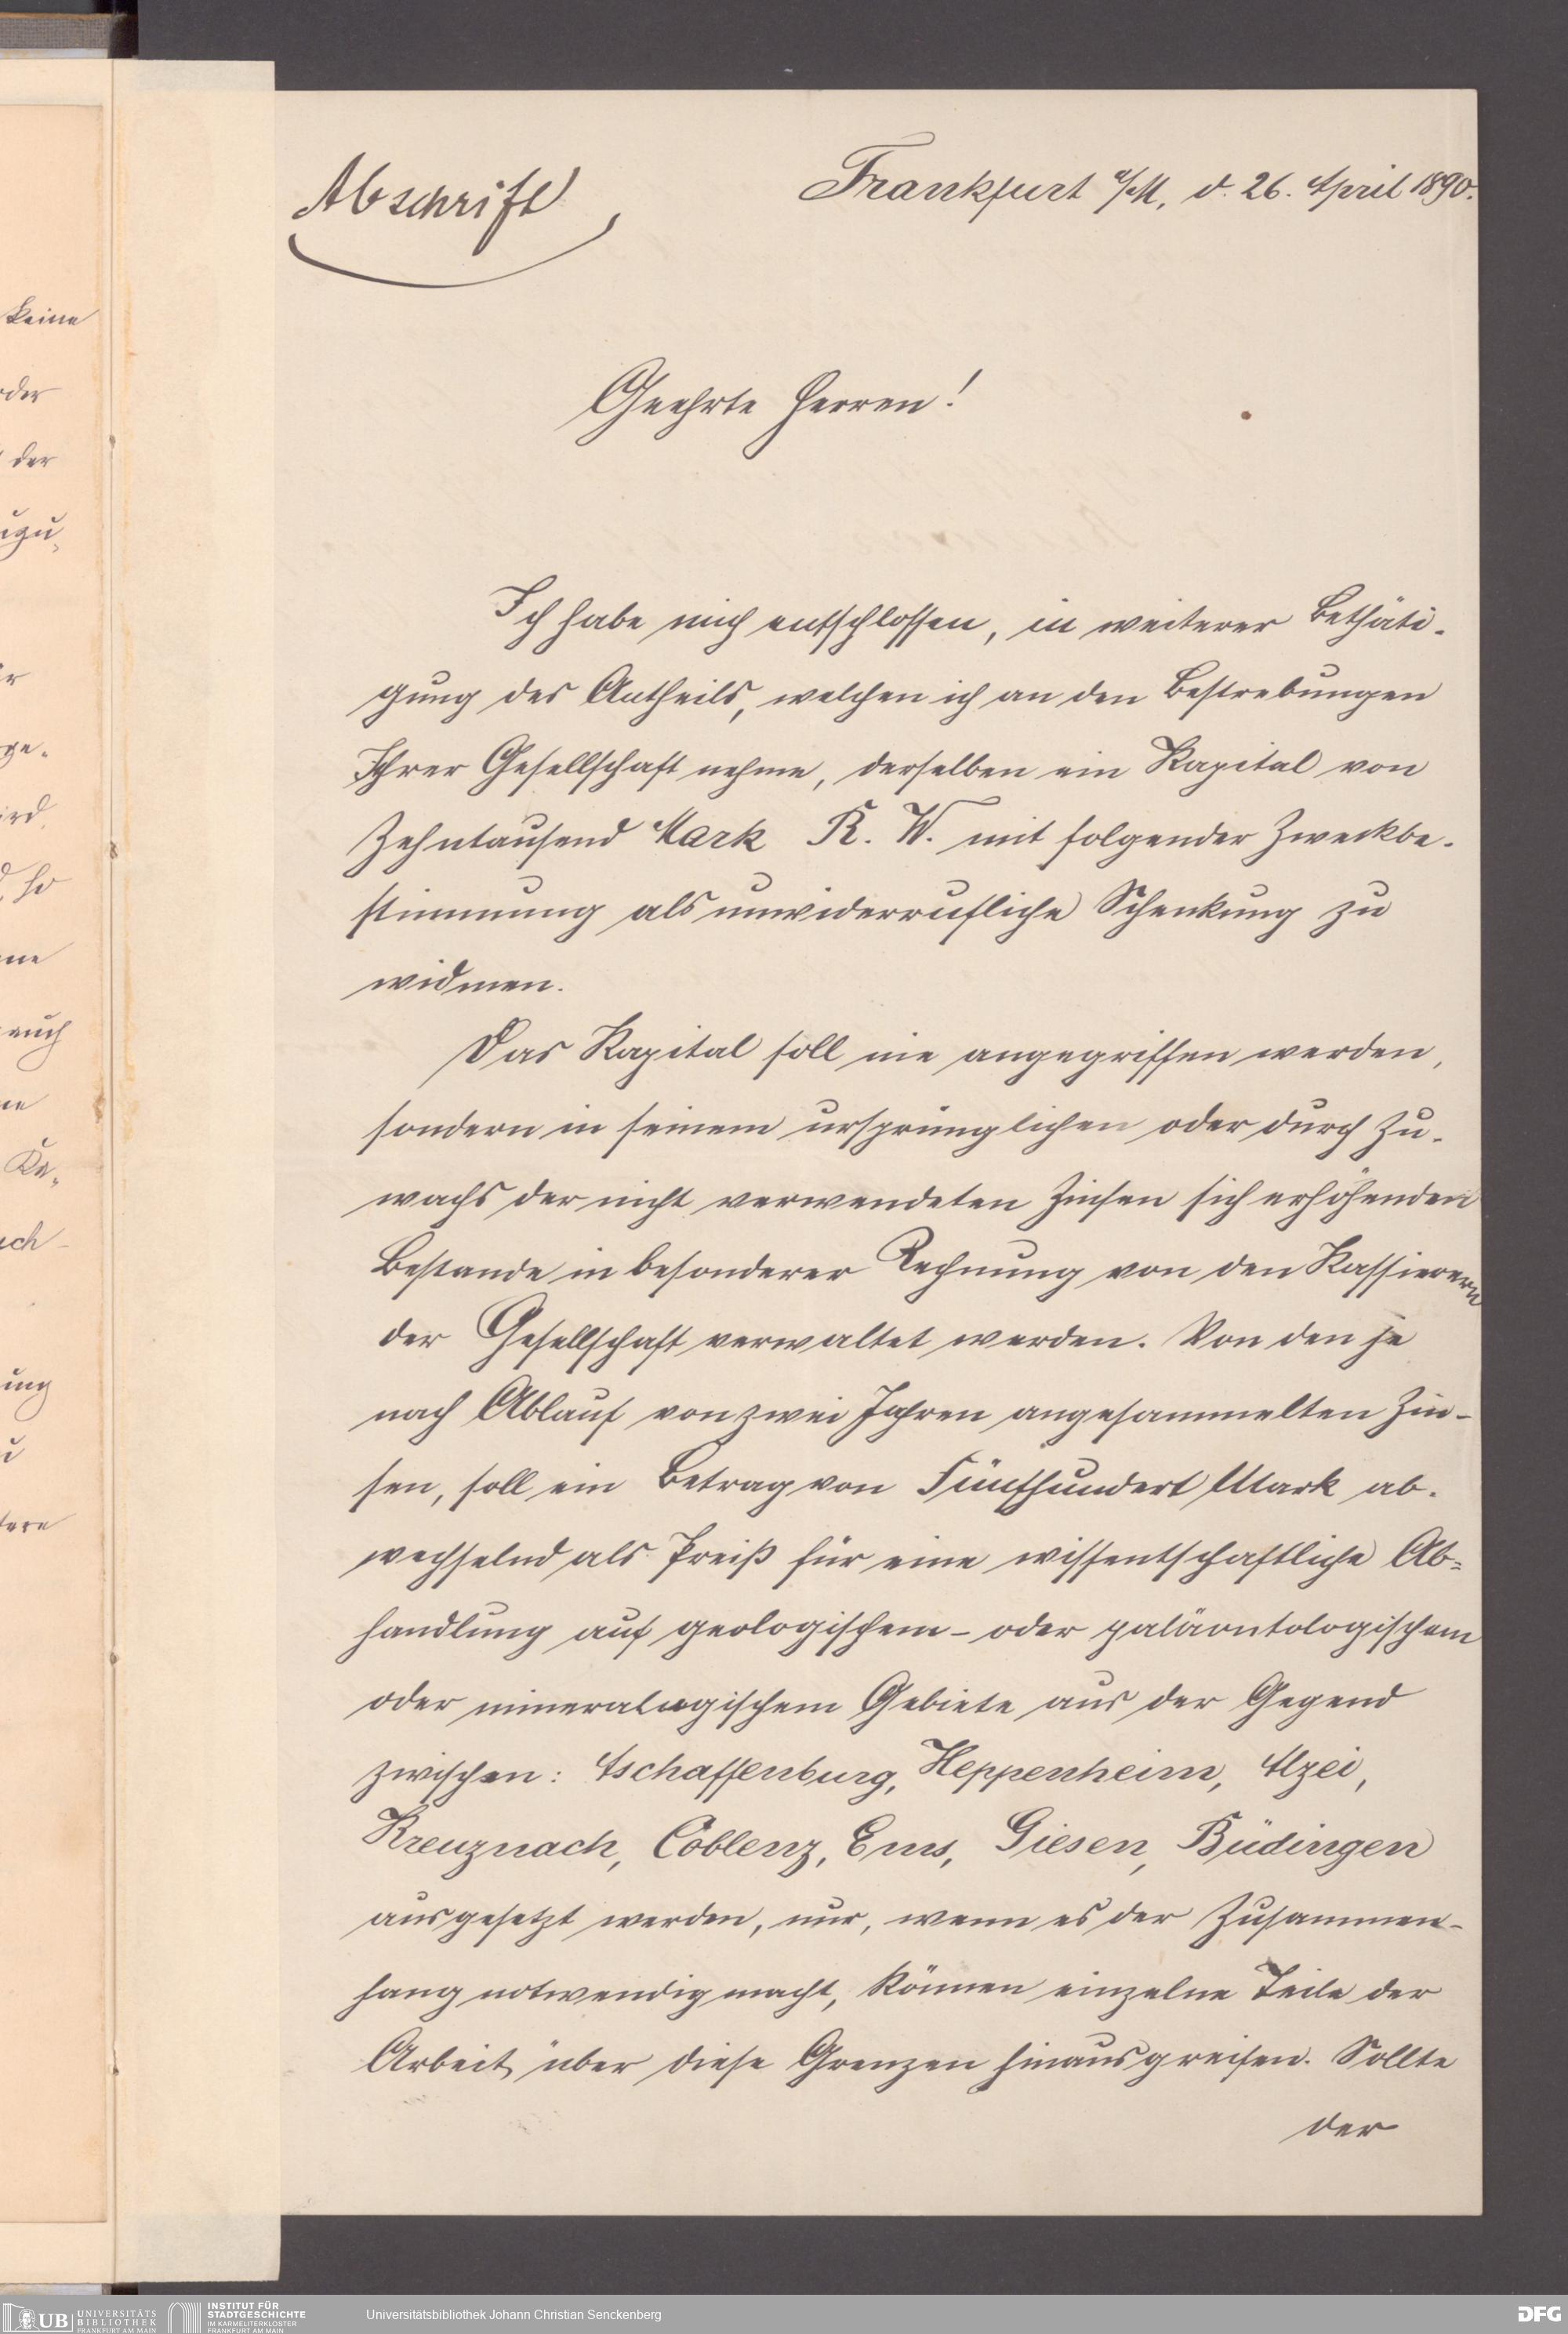 Abschrift
Frankfurt a/M, d. 26. April 1890.
Geehrte Herren!
Ich habe mich entschlossen, in weiterer Bethäti-
gung des Antheils, welchen ich an den Bestrebungen
Ihrer Gesellschaft nehme, derselben ein Kapital von
Zehntausend Mark R. W. mit folgender Zweckbe-
stimmung als unwiderrufliche Schenkung zu
widmen.
Das Kapital soll nie angegriffen werden,
sondern in seinem ursprünglichen oder durch Zu-
wachs der nicht verwendeten Zinsen sich erhöhenden
Bestande in besonderer Rechnung von den Kassierern
der Gesellschaft verwaltet werden. Von den je
nach Ablauf von zwei Jahren angesammelten Zin-
sen, soll ein Betrag von Fünfhundert Mark ab-
wechselnd als Preiß für eine wissentschaftliche Ab-
handlung auf geologischem- oder paläontologischem
oder mineralogischem Gebiete aus der Gegend
zwischen: Aschaffenburg, Heppenheim, Alzei,
Kreuznach, Coblenz, Ems, Giesen, Büdingen
ausgesetzt werden, nur, wenn es der Zusammen-
hang notwendig macht, können einzelne Teile der
Arbeit über diese Grenzen hinausgreifen. Sollte
der
keine
oder
der
ge-
so
auch
ung
UB UNIVERSITÄTS
BIBLIOTHEK
FRANKFURT AM MAIN
INSTITUT FÜR
STADTGESCHICHTE
IM KARMELITERKLOSTER
FRANKFURT AM MAIN
Universitätsbibliothek Johann Christian Senckenberg
DFG